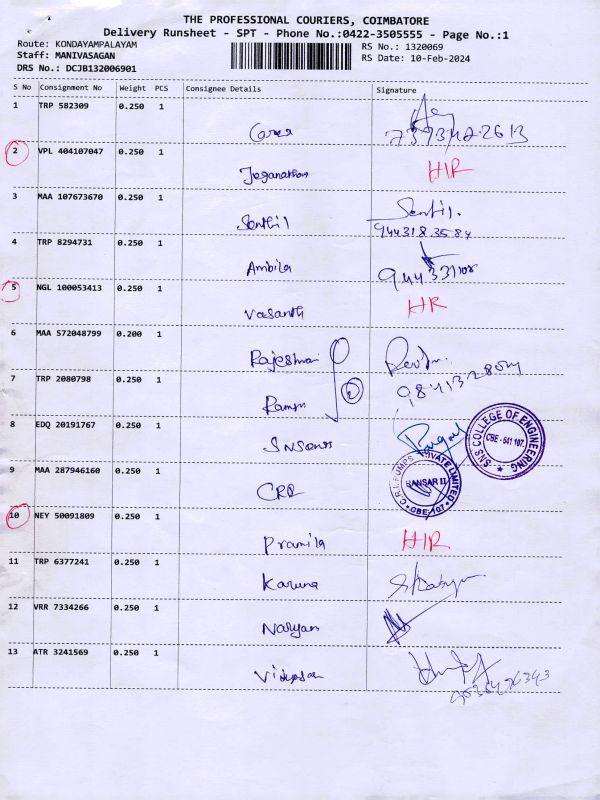 THE PROFESSIONAL COURIERS, COIMBATORE
Delivery Runsheet - SPT - Phone No.:0422-3505555 - Page No.:1
Route: KONDAYAMPALAYAM
Staff: MANIVASAGAN
DRS No.: DCJB132006901
RS No.: 1320069
RS Date: 10-Feb-2024
S No Consignment No Weight PCS Consignee Details Signature
1 TRP 582309 0.250 1
2 VPL 404107047 0.250 1
Joganathan HIR
3 MAA 107673670 0.250 1
Senthil Senthil.
9443183584
4 TRP 8294731 0.250 1
Ambika
5 NGL 100053413 0.250 1
Vasanth HR
6 MAA 572048799 0.200 1
Rajeshwari
7 TRP 2080798 0.250 1
8 EDQ 20191767 0.250 1
SNS COLLEGE OF ENGINEERING
CBE - 641 107.
9 MAA 287946160 0.250 1
PUMPS PRIVATE LIMITED
CBE/107
10 NEY 50091809 0.250 1
Pramila HIR
11 TRP 6377241 0.250 1
Karuna
12 VRR 7334266 0.250 1
Naryan
13 ATR 3241569 0.250 1